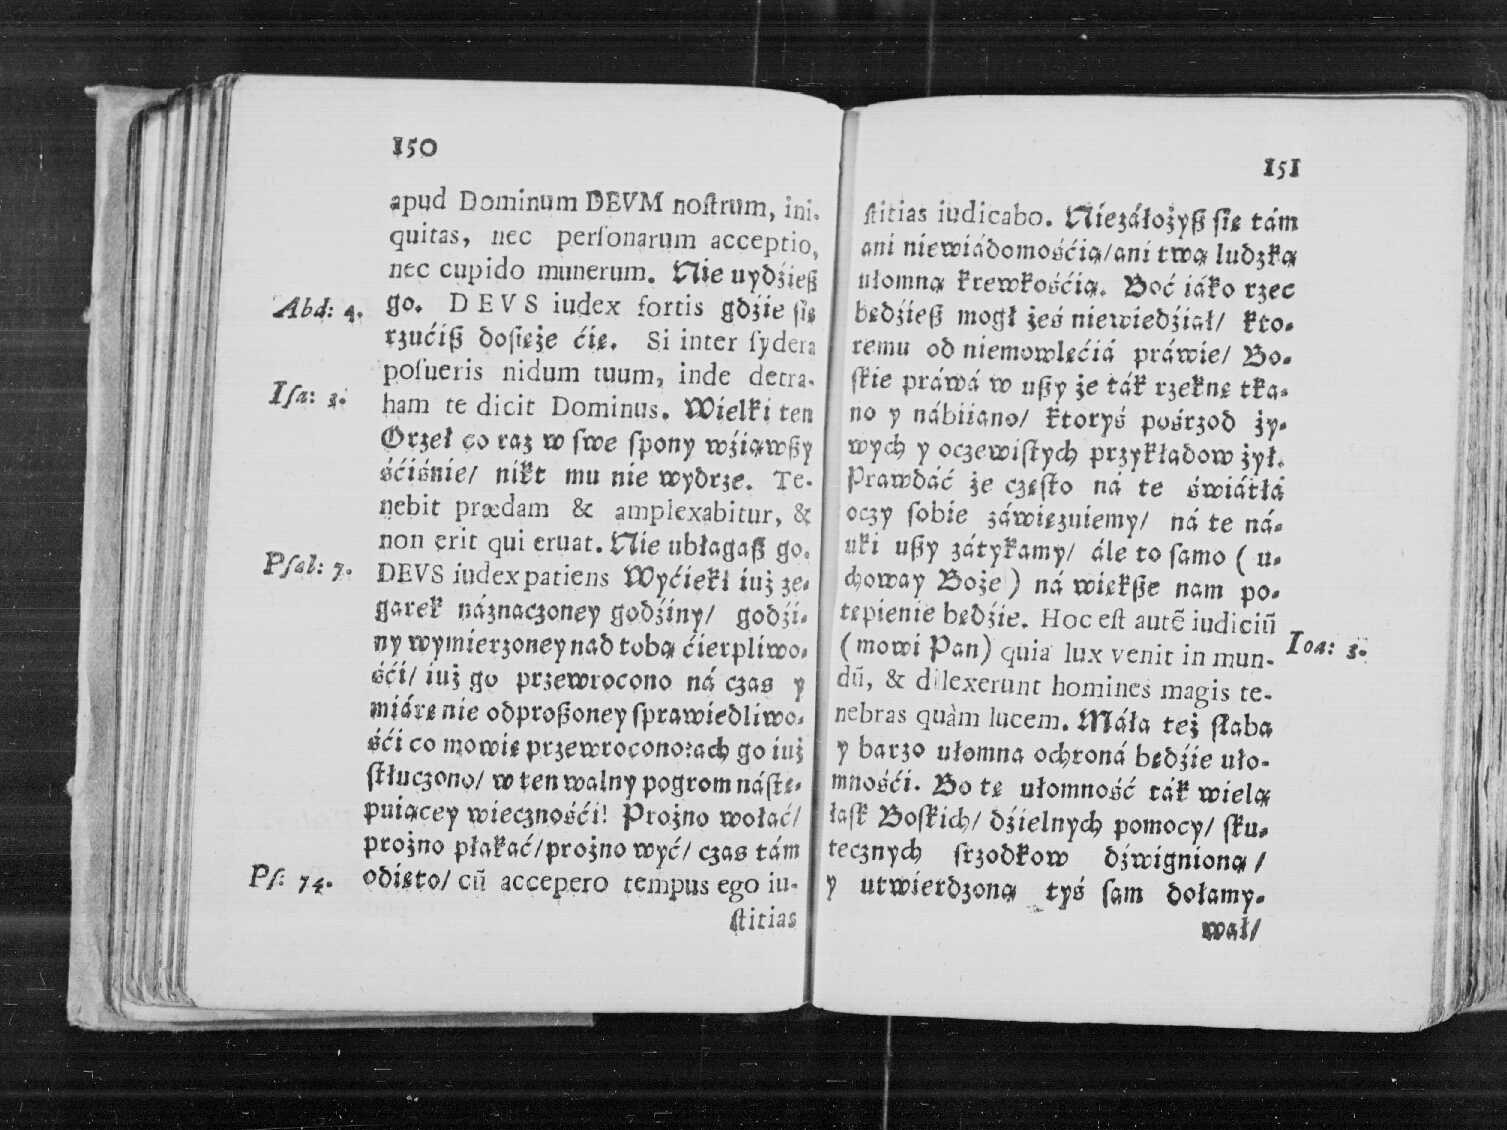 150
apud Dominum DEVM noſtrum, ini-
quitas, nec perſonarum acceptio,
nec cupido munerum. Nie uydźieß
Abd: 4.
go. DEVS iudex fortis gdźie ſię
rzućiß doſięże ćię. Si inter ſydera
poſueris nidum tuum, inde detra-
Iſa: 5.
ham te dicit Dominus. Wielki ten
Orzeł co raz w ſwe ſpony wźiąwßy
śćiśnie/ nikt mu nie wydrze. Te-
nebit prædam & amplexabitur, &
non erit qui eruat. Nie ubłagaß go.
Pſal: 7.
DEVS iudex patiens Wyćiekł iuż ze-
garek náznaczoney godźiny/ godźi-
ny wymierzoney nad tobą ćierpliwo-
śći/ iuż go przewrocono ná czas y
miárę nie odproßoney ſprawiedliwo-
śći co mowię przewrocono: ach go iuż
ſtłuczono/ w ten walny pogrom náſtę-
puiącey wiecznośći! Prożno wołać/
prożno płakać/ prożno wyć/ czas tám
Pſ: 74.
odięto/ cũ accepero tempus ego iu-
ſtitias
151
ſtitias iudicabo. Niezáłożyß ſię tám
ani niewiádomośćią/ ani twą ludzką
ułomną krewkośćią. Boć iáko rzec
będźieß mogł żeś niewiedźiał/ kto-
remu od niemowlęćiá práwie/ Bo-
ſkie práwá w ußy że ták rzeknę tka-
no y nábiiano/ ktoryś pośrzod ży-
wych y oczewiſtych przykładow żył.
Prawdáć że częſto ná te świátłá
oczy ſobie záwięzuiemy/ ná te ná-
uki ußy zátykamy/ ále to ſamo ( u-
choway Boże ) ná większe nam po-
tępienie będźie. Hoc eſt autẽ iudiciũ
Ioa: 3.
(mowi Pan) quia lux venit in mun-
dũ, & dilexerunt homines magis te-
nebras quàm lucem. Máła też ſłaba
y barzo ułomna ochroná będźie uło-
mnośći. Bo tę ułomność ták wielą
łaſk Boſkich/ dźielnych pomocy/ ſku-
tecznych ſrzodkow dźwignioną/
y utwierdzoną tyś ſam dołamy-
wał/